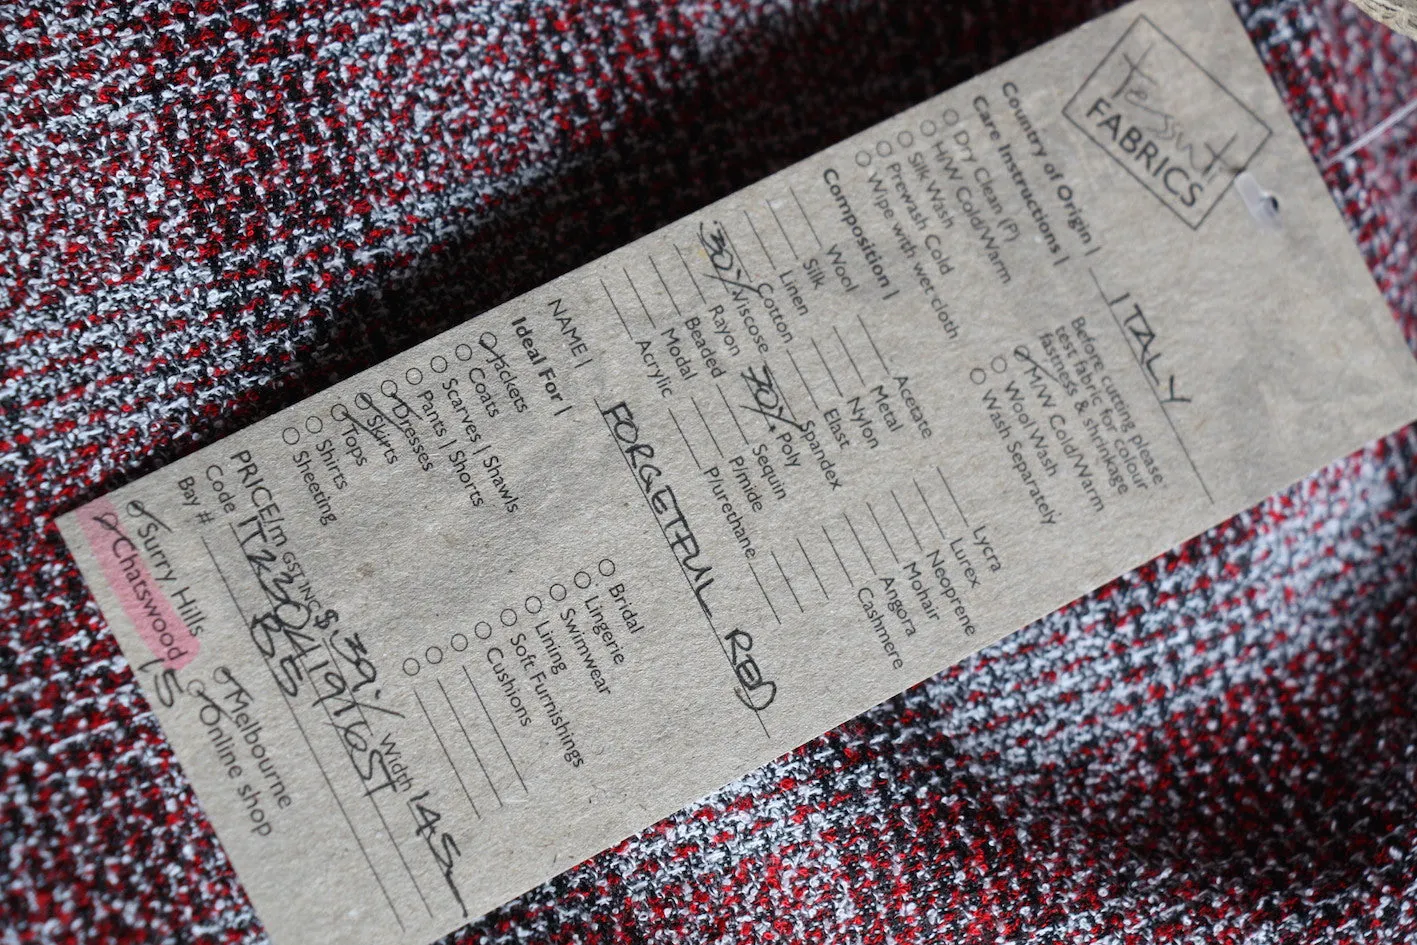 Tessuti
FABRICS
Country of Origin | ITALY
Care Instructions |
Dry Clean (P)
H/W Cold/Warm
Silk Wash
Prewash Cold
Wipe with wet cloth
Before cutting please
test fabric for colour
fastness & shrinkage
M/W Cold/Warm
Wool Wash
Wash Separately
Composition |
Wool
Silk
Linen
Cotton
30% Viscose
Rayon
Beaded
Modal
Acrylic
Acetate
Metal
Nylon
Elast
Spandex
70% Poly
Sequin
P/mide
P/urethane
Lycra
Lurex
Neoprene
Mohair
Angora
Cashmere
NAME | FORGETFUL RED
Ideal For |
Jackets
Coats
Scarves | Shawls
Pants | Shorts
Dresses
Skirts
Tops
Shirts
Sheeting
Bridal
Lingerie
Swimwear
Lining
Soft Furnishings
Cushions
PRICE/m GST INC $ 39./ Width 145
Code
Bay # B5
Surry Hills
Chatswood 15
Melbourne
Online shop